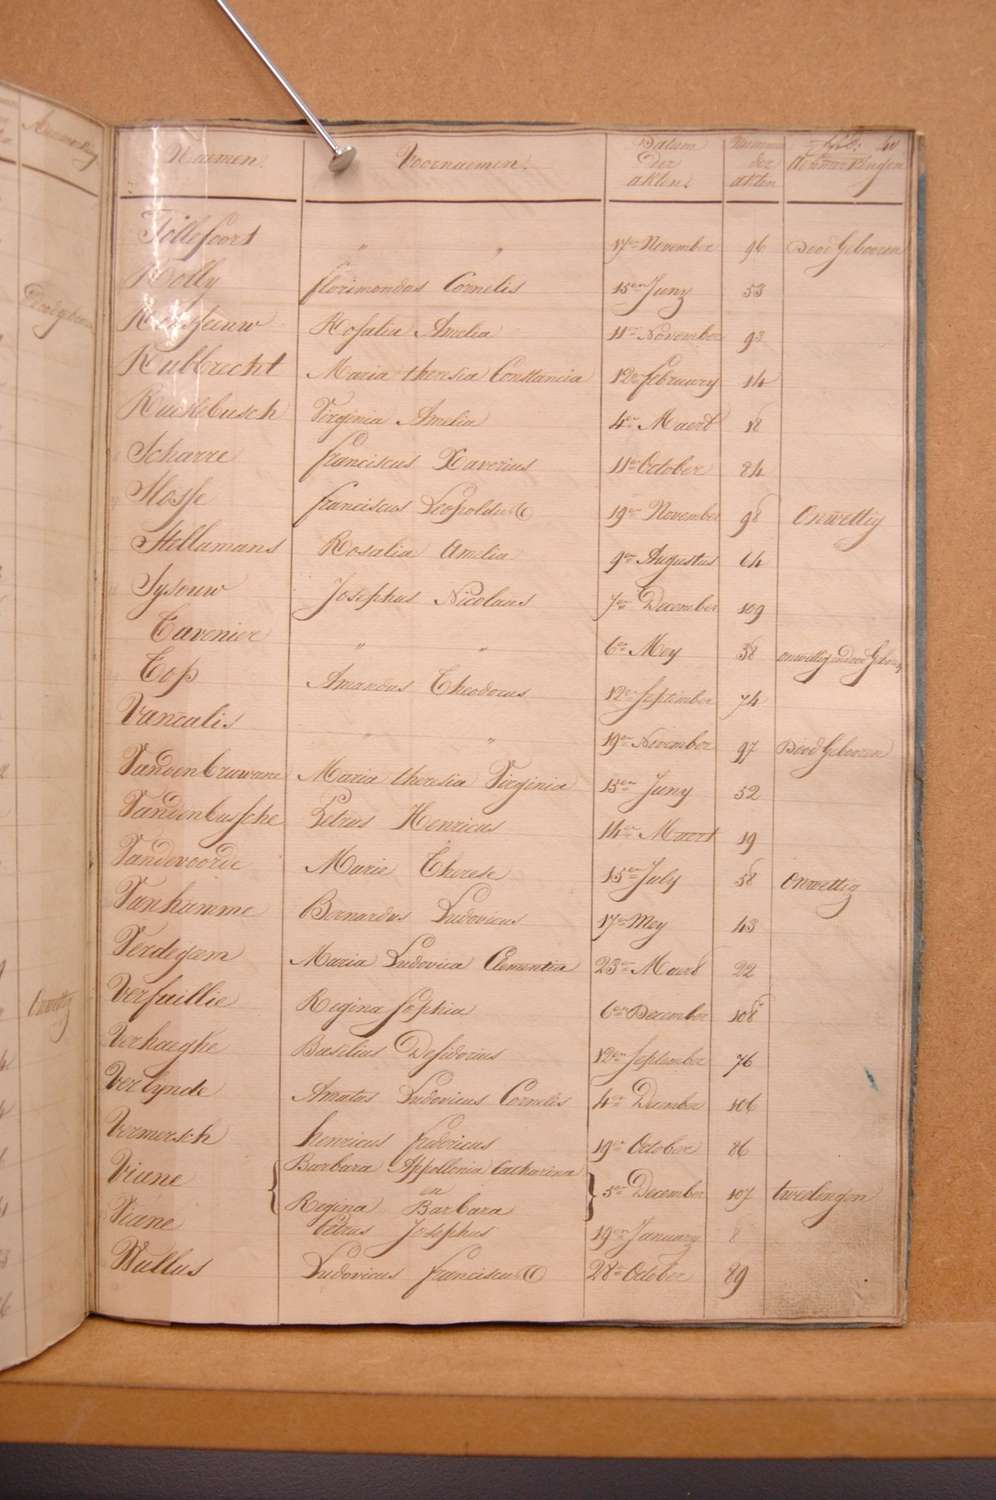 Naemen. Voornaemen. Datum der akten Nummer der akten
Tollefoort " " 17en November 96 Dood Gebooren
Rolly florimondus Cornelis 15en Juny 53
Rosalia Amelia 11en November 93
Rubbrecht Maria theresia Constancia 12en february 14
Ruckebusch Virginia Amelia 4en Maert 18
Scharre franciscus Xaverius 11en October 84
Slosse franciscus Leopoldus 19en November 98 Onwettig
Stellamans Rosalia Amelia 9en Augustus 64
Sysouw Josephus Nicolaus 7en December 109
Tavenier " " 6en Mey 38
Top Amandus Theodorus 12en September 74
Vancalis " " 19en November 97 Dood Gebooren
Vandenbruwane Maria theresia Virginia 15en Juny 52
Vandenbussche Petrus Henricus 14en Maert 19
Vandevoorde Marie Therese 15en July 58 Onwettig
Vanhamme Bernardus Ludovicus 17en Mey 43
Verdegem Maria Ludovica Clementia 23en Maert 22
Verfaillie Regina Sophia 6en December 108
Verhaeghe Basilius Desiderius 12en September 76
Verlynde Amatus Ludovicus Cornelis 4en December 106
Vermersch henricus fredericus 19en October 86
Viane Barbara Appollonia Catharina
en 5en December 107 tweelingen
Regina Barbara
Viane Petrus Josephus 19en January 8
Wallus Ludovicus franciscus 28en October 89
Onwettig